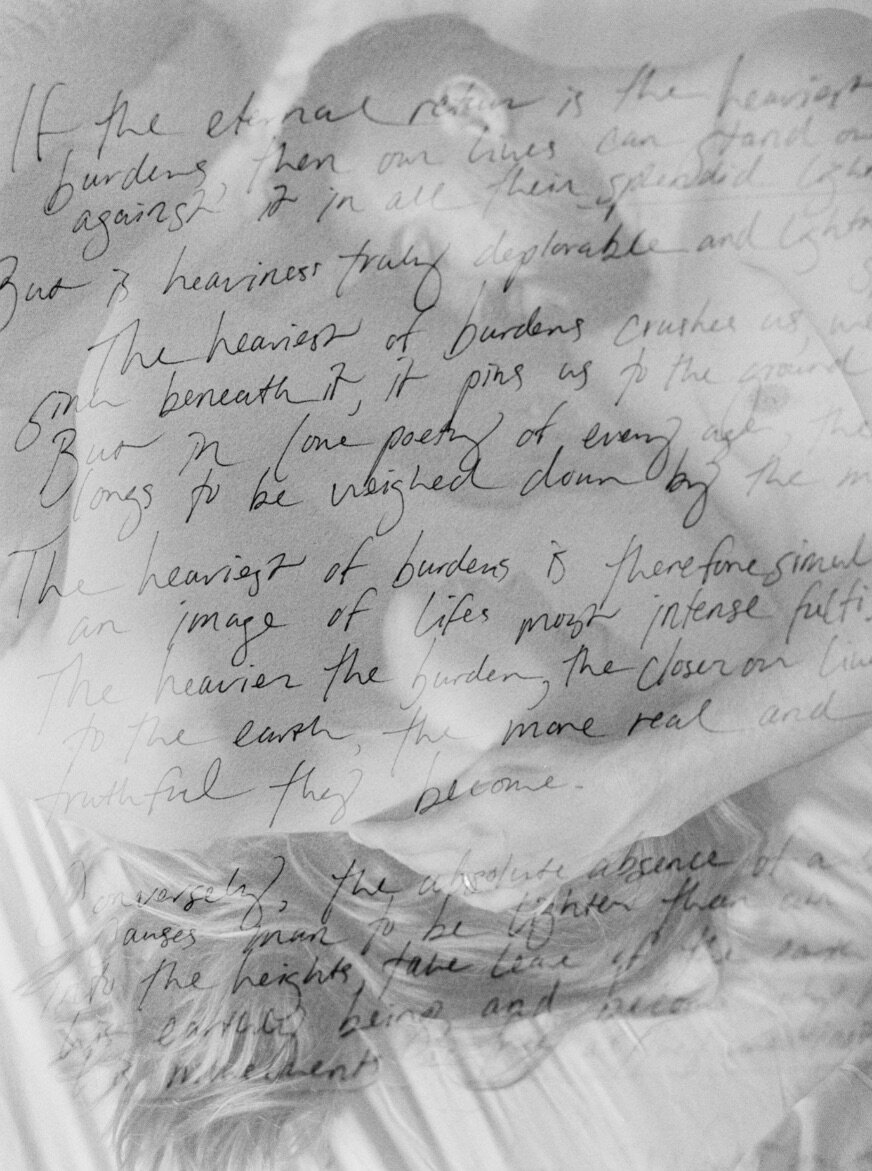 If the eternal return is the heaviest
burdens, then our lives can stand ou
against it in all their splendid ligh
But is heaviness truly deplorable and lightn
The heaviest of burdens crushes us, we
sink beneath it, it pins us to the ground
But in love poetry of every age, the
longs to be weighed down by the m
The heaviest of burdens is therefore simul
an image of lifes most intense fulfi
The heavier the burden, the closer our live
to the earth, the more real and
truthful they become.
Conversely, the absolute absence of a
causes man to be lighter than
into the heights, take leave of the
his earthly being and become
movements